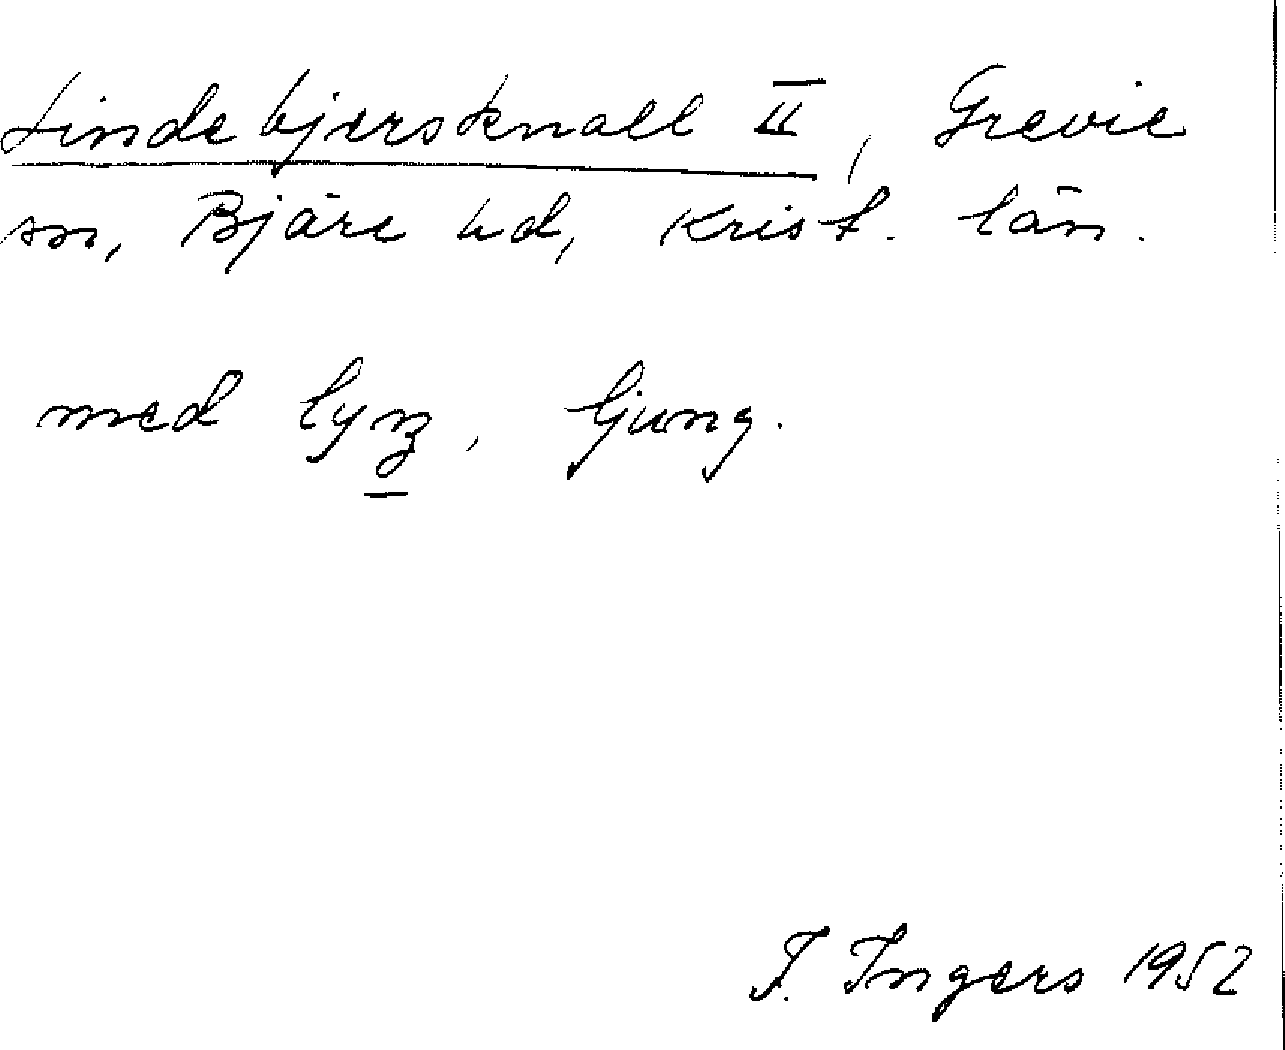 Lindebjersknall II, Grevie
sn, Bjäre hd, Krist. län.
med lyŋ, ljung.
I. Ingers 1952